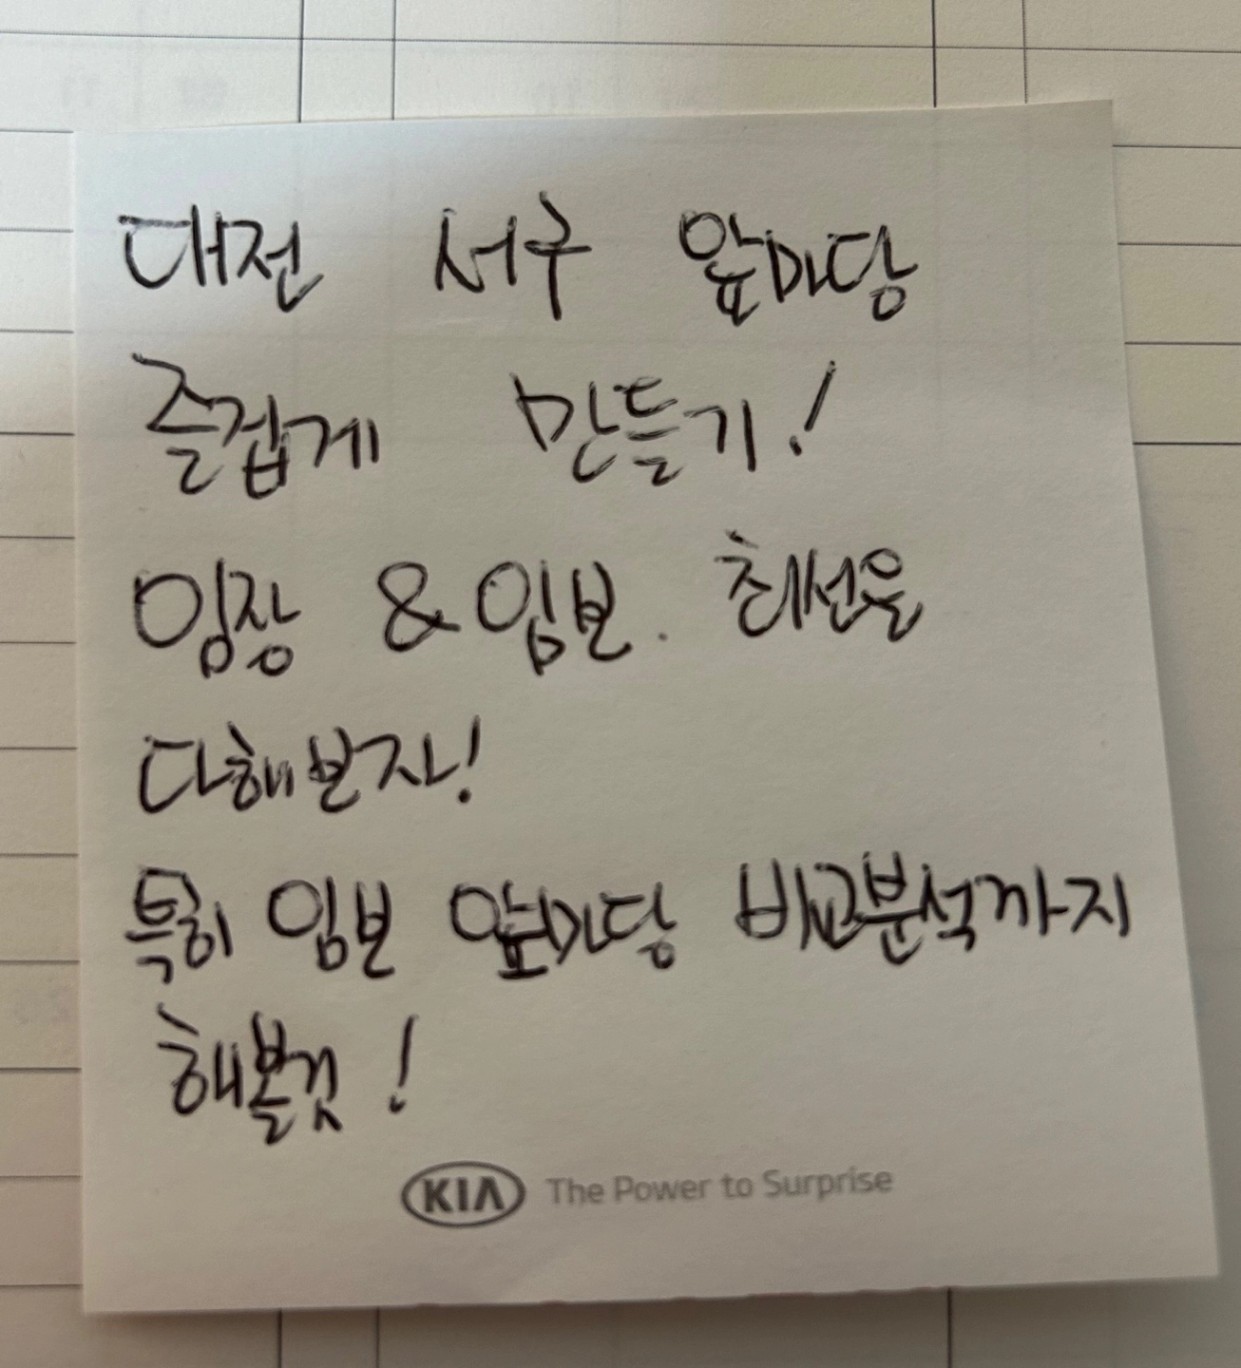 대전 서구 앞마당
즐겁게 만들기!
임장 & 임보. 최선을
다해보자!
특히 임보 앞마당 비교분석까지
해볼것!
KIA The Power to Surprise